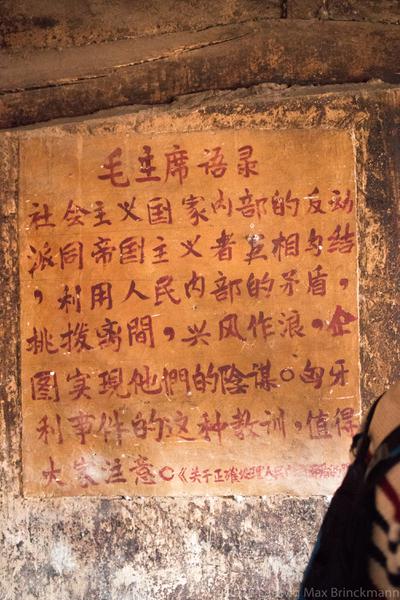 毛主席语录
社会主义国家内部的反动
派同帝国主义者互相勾结
，利用人民内部的矛盾，
挑拨离間，兴风作浪，企
图实現他們的陰谋。匈牙
利事件的这种教训，值得
大家注意。《关于正確处理人民
Max Brinckmann